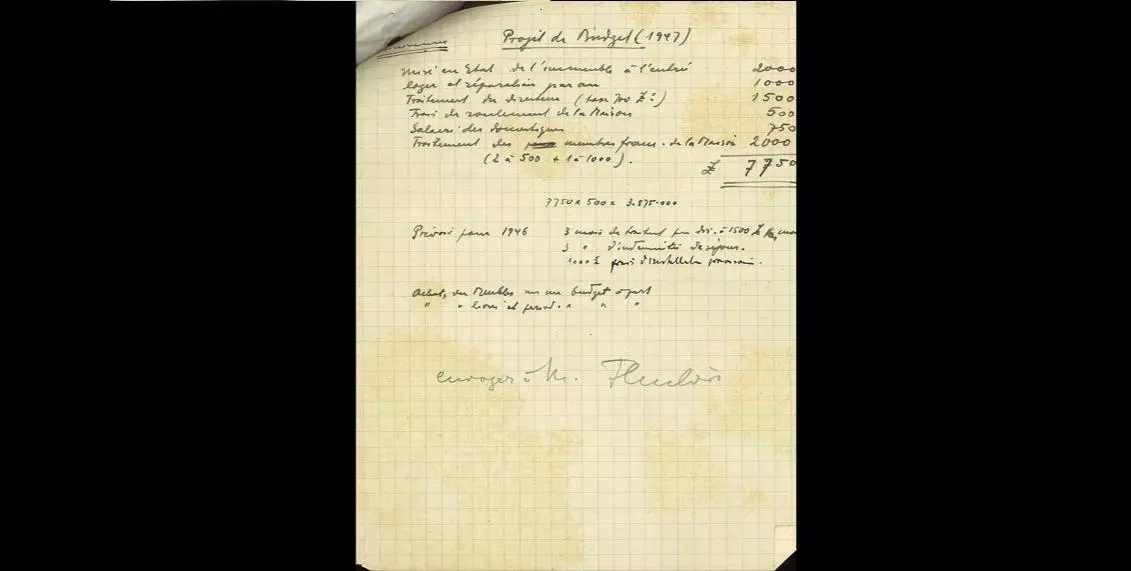 Projet de Budget (1947)
Mise en Etat de l'immeuble à l'entrée 2000
loyer et réparations par an 1000
Traitement du directeur (taux 700 £) 1500
Frais de roulement de la Maison 500
Salaires des domestiques 750
Traitement des membres franç. de la Maison 2000
(2 à 500 + 1 à 1000).
£ 7750
7750 x 500 = 3.875.000
Prévoir pour 1946 3 mois de par dir. à 1500 £
3 " d'indemnités de séjour.
1000 £ frais d'install
Achat, des Meubles sur un budget à part
" " livres et period. " " "
envoyer à M.